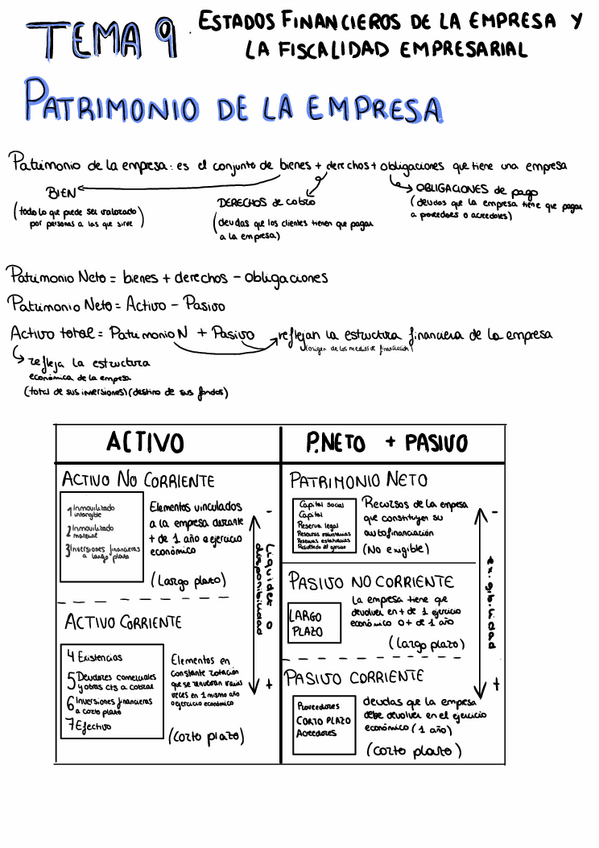 TEMA 9 ESTADOS FINANCIEROS DE LA EMPRESA Y
LA FISCALIDAD EMPRESARIAL
PATRIMONIO DE LA EMPRESA
Patrimonio de la empresa: es el conjunto de bienes + derechos + obligaciones que tiene una empresa
BIEN
(todo lo que puede ser valorado
por personas a las que sirve)
DERECHOS de cobro
(deudas que los clientes tienen que pagar
a la empresa)
OBLIGACIONES de pago
(deudas que la empresa tiene que pagar
a proveedores o acreedores)
Patrimonio Neto = bienes + derechos - obligaciones
Patrimonio Neto = Activo - Pasivo
Activo total = Patrimonio N + Pasivo → reflejan la estructura financiera de la empresa
(origen de los medios de financiación)
refleja la estructura
económica de la empresa
(total de sus inversiones) (destino de sus fondos)
ACTIVO
ACTIVO NO CORRIENTE
1 Inmovilizado
intangible
2 Inmovilizado
material
3 Inversiones financieras
a largo plazo
Elementos vinculados
a la empresa durante
+ de 1 año o ejercicio
económico
(Largo plazo)
ACTIVO CORRIENTE
4 Existencias
5 Deudores comerciales
y otras cts a cobrar
6 Inversiones financieras
a corto plazo
7 Efectivo
Elementos en
constante rotación
que se renuevan varias
veces en 1 mismo año
o ejercicio económico
(corto plazo)
-
Liquidez o
disponibilidad
+
P.NETO + PASIVO
PATRIMONIO NETO
Capital social
Capital
Reserva legal
Reservas voluntarias
Reservas estatutarias
Resultado del ejercicio
Recursos de la empresa
que constituyen su
autofinanciación
(No exigible)
PASIVO NO CORRIENTE
LARGO
PLAZO
la empresa tiene que
devolver en + de 1 ejercicio
económico o + de 1 año
(largo plazo)
PASIVO CORRIENTE
Proveedores
CORTO PLAZO
Acreedores
deudas que la empresa
debe devolver en el ejercicio
económico (1 año)
(corto plazo)
-
exigibilidad
+